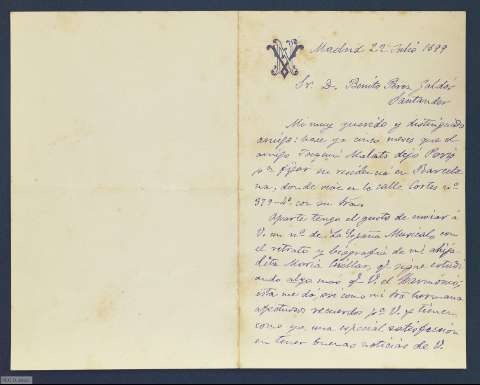 Madrid 22 Julio 1899
Sr. D. Benito Perez Galdós
Santander
Mi muy querido y distinguido
amigo: hace ya cinco meses que el
amigo Joaquin Malats dejó París
pª fijar su residencia en Barcelo
na, donde vive en la calle Cortes nº
379-4º con su tía.
Aparte tengo el gusto de enviar á
V. un nº de La España Musical, con
el retrato y biografía de mi ahija
dita María Cuellar, qe sigue estudi
ando algo más qe V. el Harmonio;
ésta me da, así como mi tía hermana
afectuosos recuerdos pª V. y tienen
como yo, una especial satisfacción
en tener buenas noticias de V.